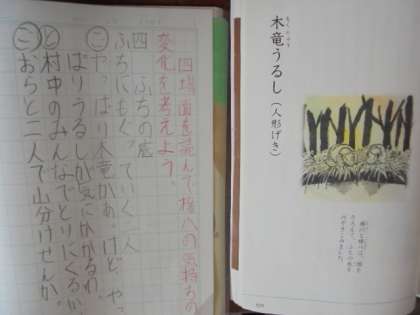 四場面を読んで権八の気持ちの
変化を考えよう。
四 ふちの底
ふちにもぐっていく二人
こ やっぱり木竜かあ。けど、やっ
ぱりうるしが気にかかるわ。
と 村中のみんなでとりにくるか
こ おらと二人で山分けせんか。
木竜うるし(人形げき)